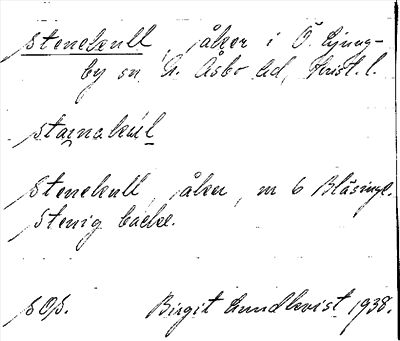 Stenekull, åker i Ö. Ljung-
by sn N. Åsbo hd, Krist. l.
stɑi̯nakúl
Stenekull, åker, nr 6 Bläsinge.
Stenig backe.
s Ops. Birgit Lundkvist 1938.